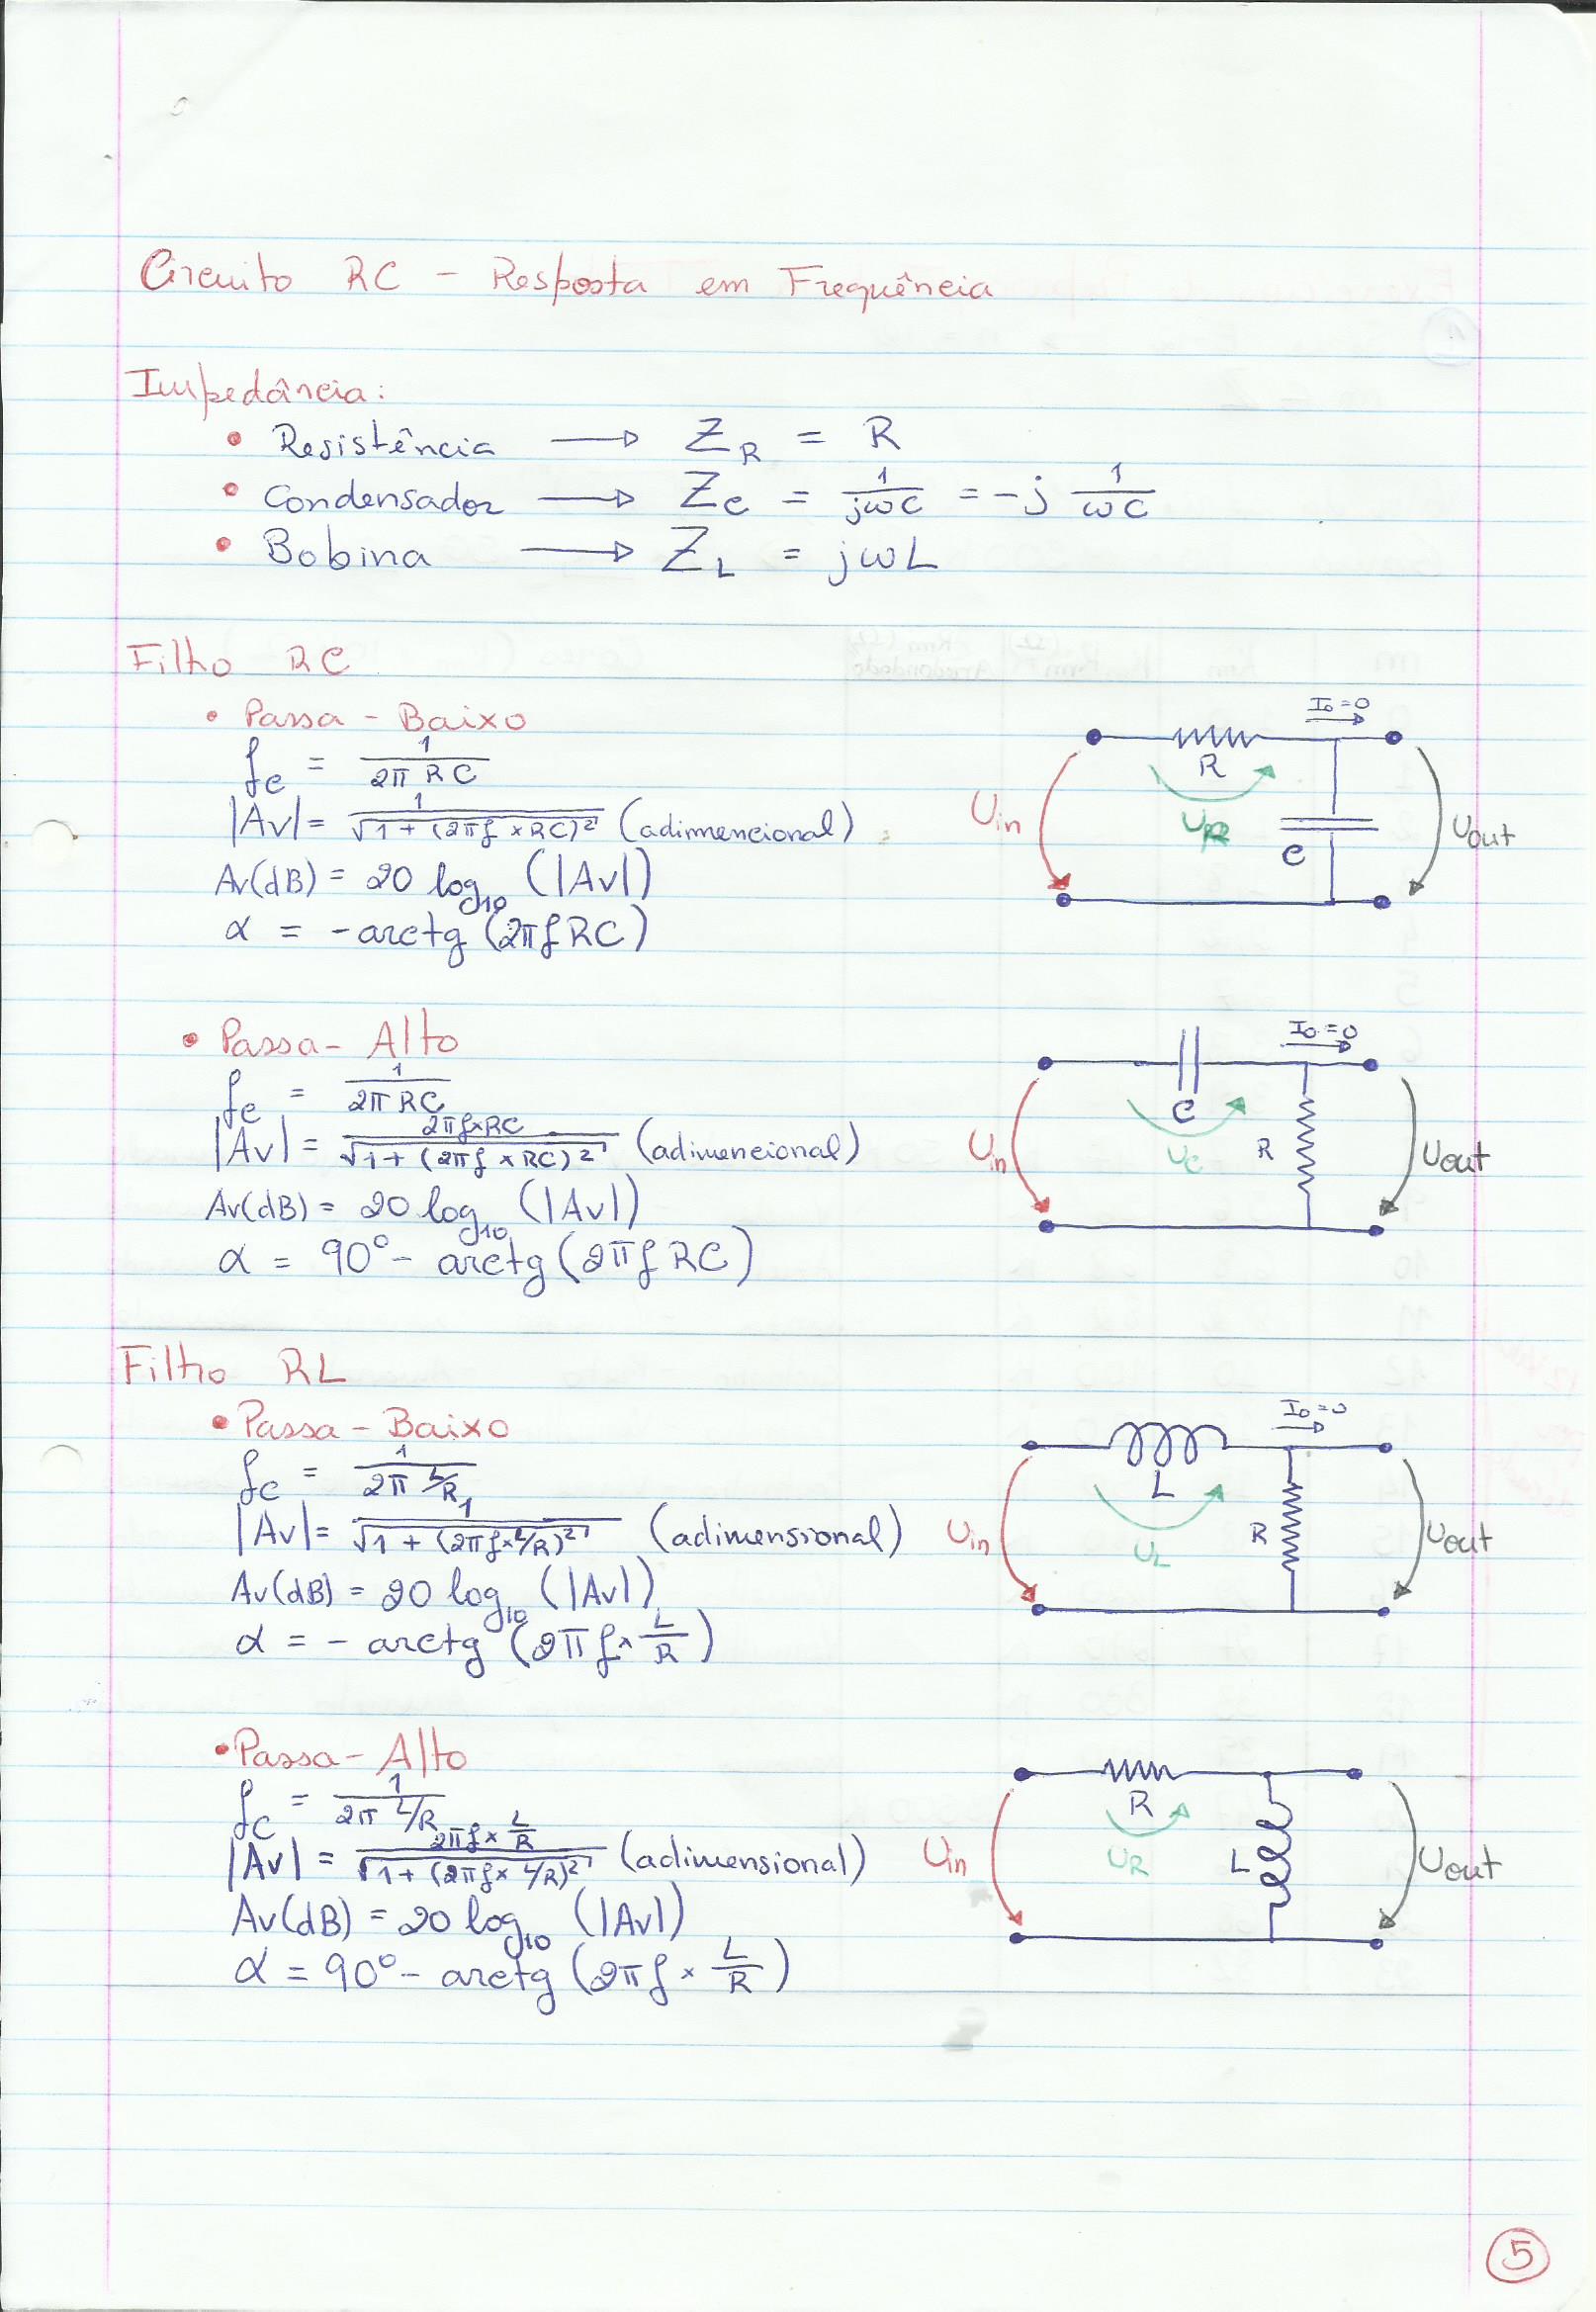 Circuito RC - Resposta em Frequência
Impedância:
• Resistência → Z_R = R
• Condensador → Z_C = 1/(jωC) = -j 1/(ωC)
• Bobina → Z_L = jωL
Filtro RC
• Passa-Baixo
f_c = 1/(2π RC)
|Av| = 1/√(1 + (2πf × RC)²) (adimmencional)
Av(dB) = 20 log₁₀ (|Av|)
α = -arctg (2πf RC)
I₀=0
R
U_R
C
Uin
Uout
• Passa-Alto
f_c = 1/(2π RC)
|Av| = 2πf×RC/√(1 + (2πf × RC)²) (adimencional)
Av(dB) = 20 log₁₀ (|Av|)
α = 90° - arctg (2πf RC)
I₀=0
C
U_C
R
Uin
Uout
Filtro RL
• Passa-Baixo
f_c = 1/(2π L/R)
|Av| = 1/√(1 + (2πf×L/R)²) (adimensional)
Av(dB) = 20 log₁₀ (|Av|)
α = - arctg (2πf × L/R)
I₀=0
L
U_L
R
Uin
Uout
• Passa-Alto
f_c = 1/(2π L/R)
|Av| = 2πf × L/R/√(1 + (2πf × L/R)²) (adimensional)
Av(dB) = 20 log₁₀ (|Av|)
α = 90° - arctg (2πf × L/R)
R
U_R
L
Uin
Uout
5